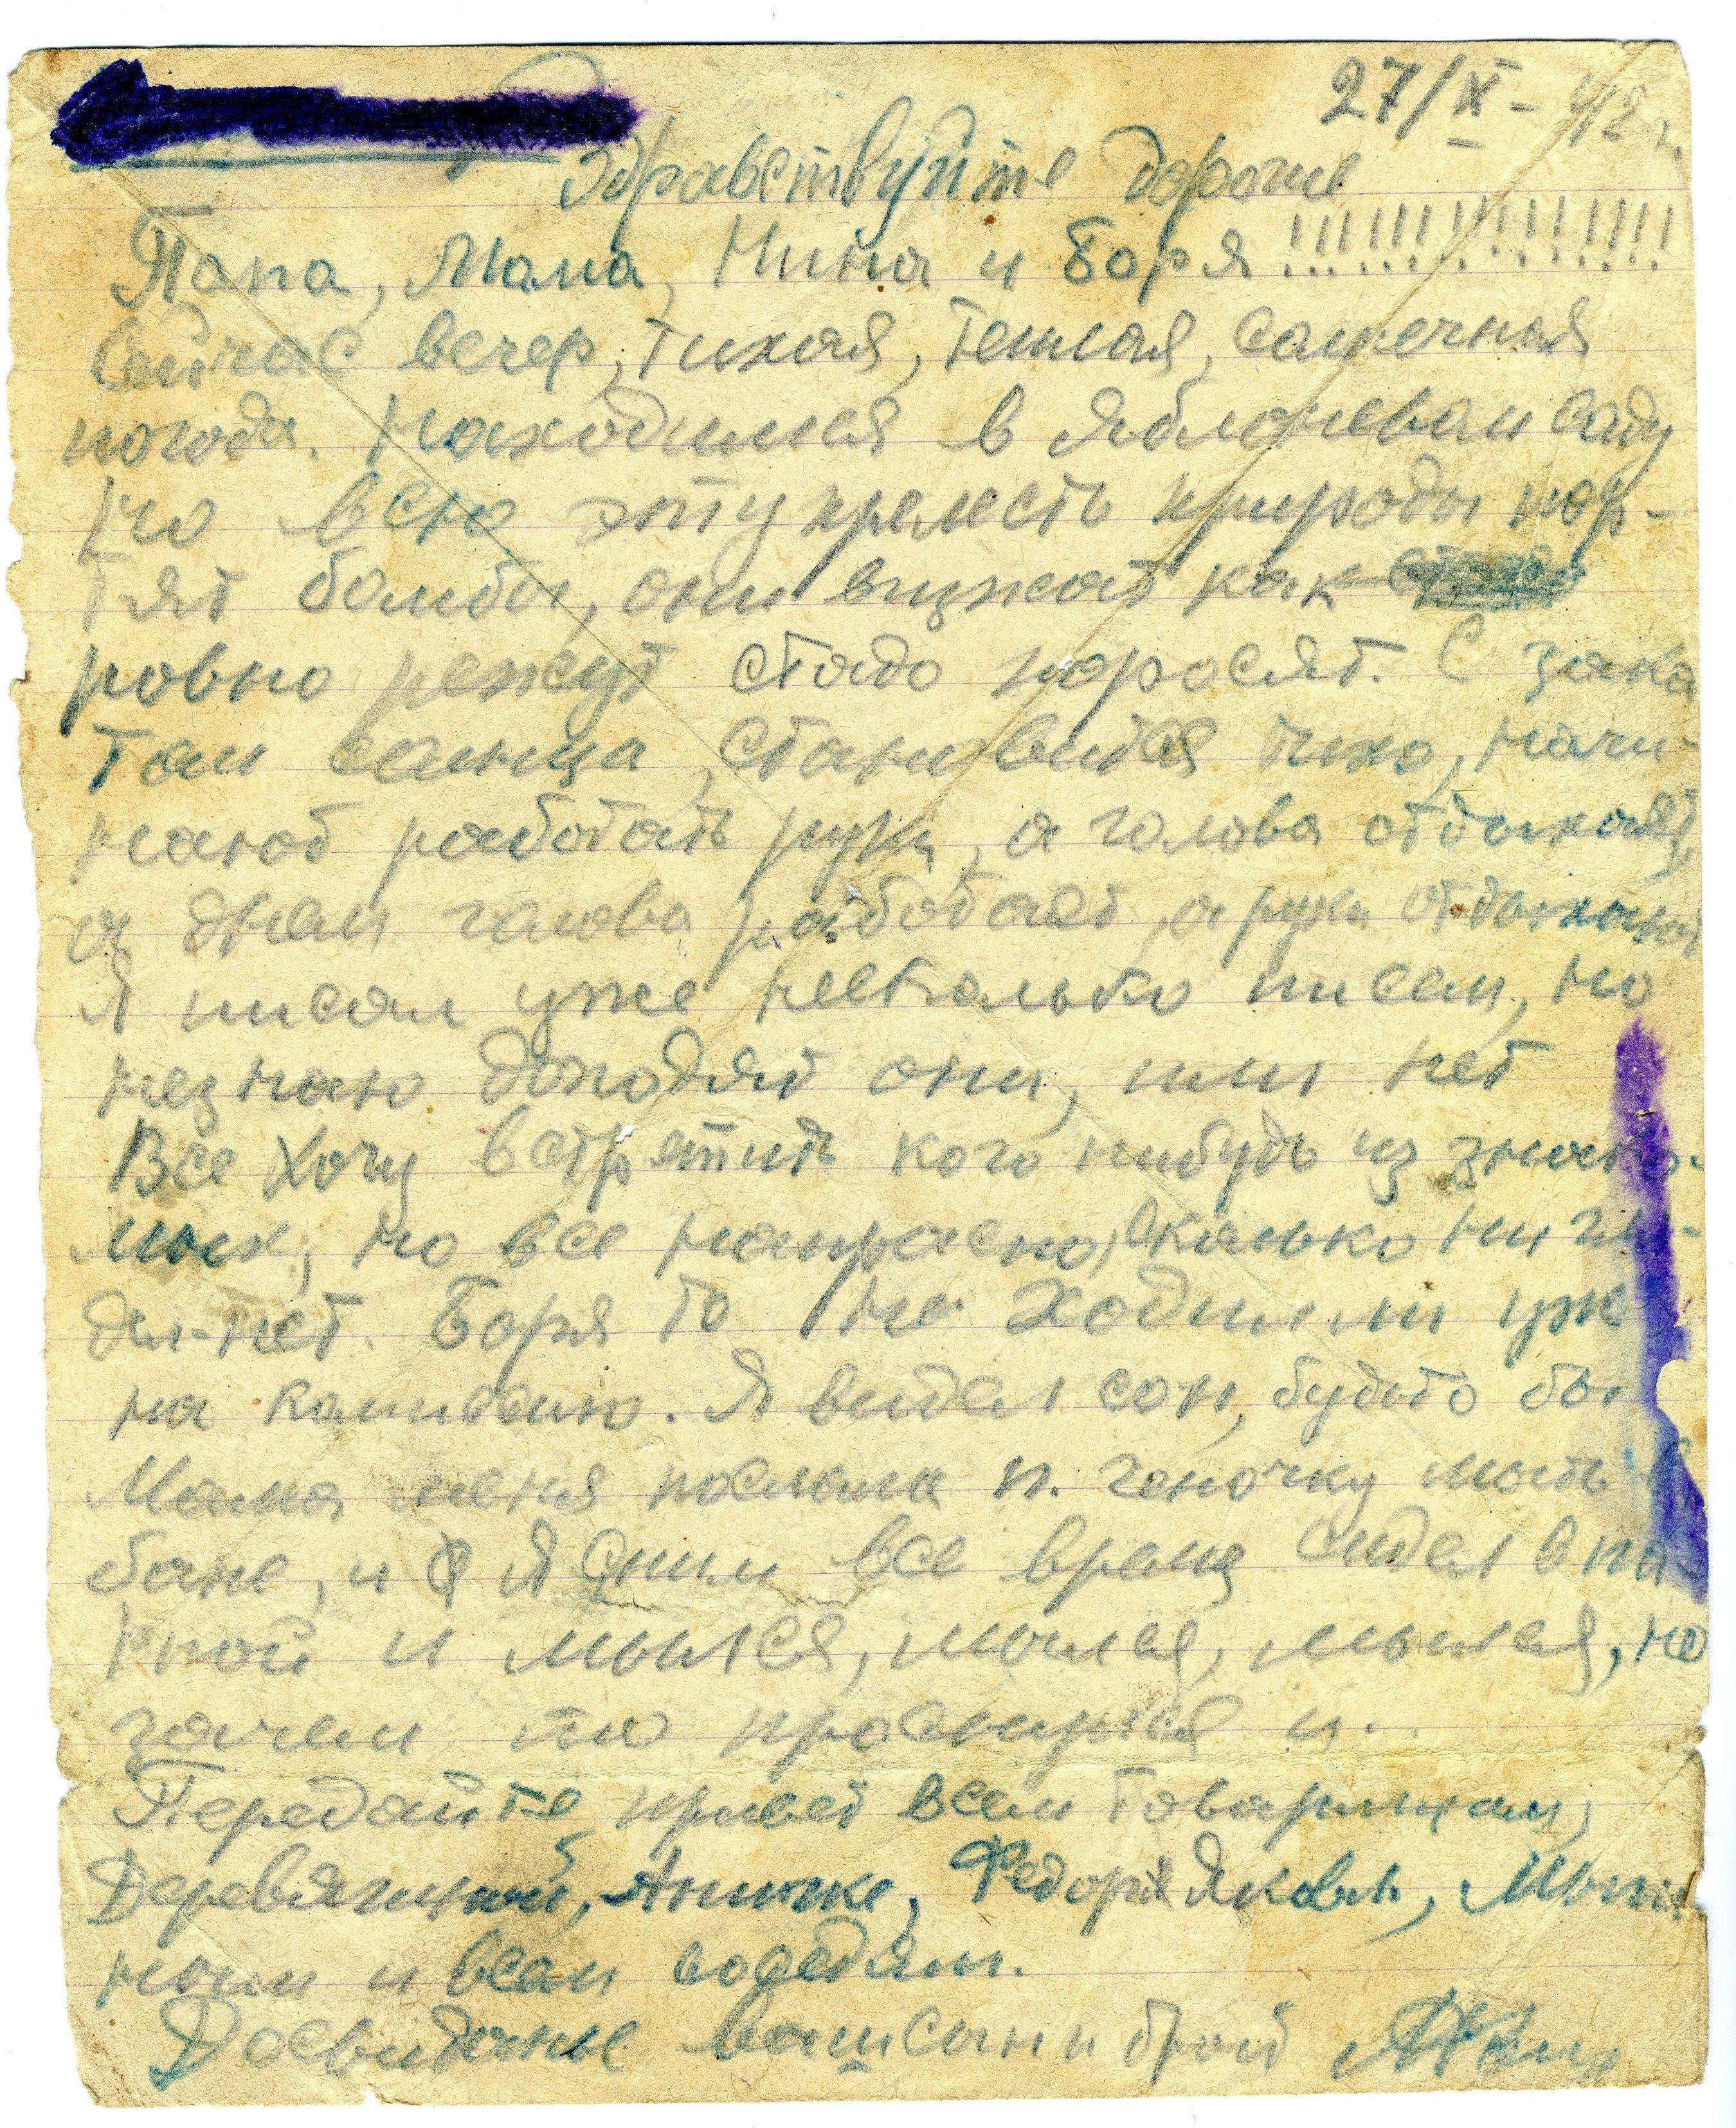 27/IX - 42 г.
Здравствуйте дорогие
Папа, Мама, Нина и Боря !!!!!!!!!!!!!!
Сейчас вечер, тихая, теплая, солнечная
погода. Находимся в яблоневом саду
но всю эту прелесть природы пор-
тят бомбы, они визжат как
ровно режут стадо поросят. С зака
том солнца, становится тихо, начи-
нают работать руки, а голова отдыхает,
а днем голова работает, а руки отдыхают
Я писал уже несколько писем, но
незнаю доходят они, или нет
Все хочу встретить кого нибудь из знако-
мых, но все напрасно, сколько ни гля-
дел-нет. Боря то не ходили уж
на комиссию. Я видел сон, будьто бы
Мама меня послала мыть
бане, и я сним все время сидел в па-
рной и мылся, мылся, мылся, но
зачем то проснулся и..
Передайте привет всем товарищам,
Аничке, Федор Яковл.,
и всем соседям.
Досвиданье ваш сын и брат